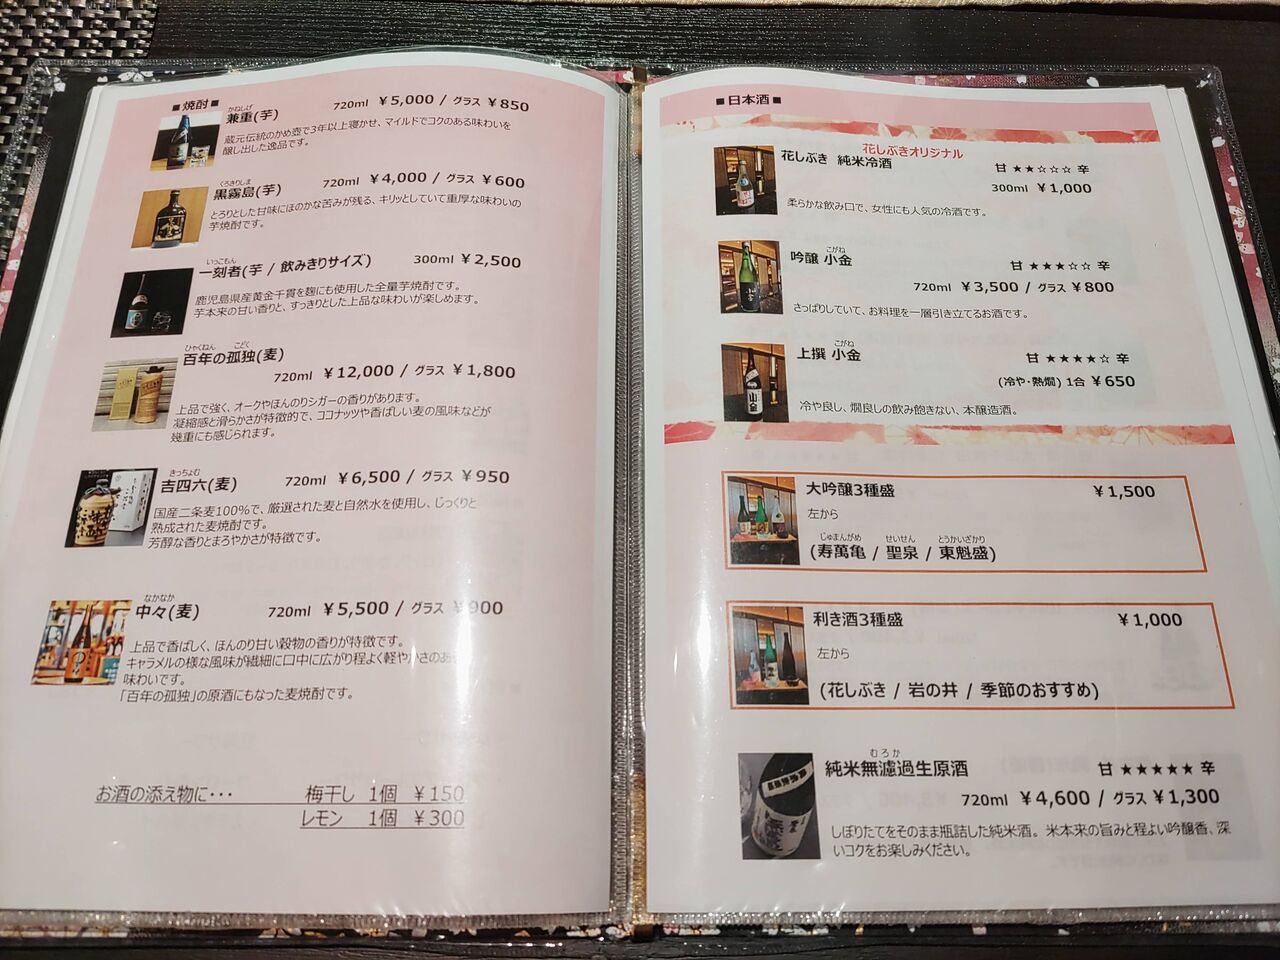 ■焼酎■
かねしげ
兼重(芋)
720ml ￥5,000 / グラス ￥850
蔵元伝統のかめ壺で3年以上寝かせ、マイルドでコクのある味わいを
醸し出した逸品です。
くろきりしま
黒霧島(芋)
720ml ￥4,000 / グラス ￥600
とろりとした甘味にほのかな苦みが残る、キリッとしていて重厚な味わいの
芋焼酎です。
いっこもん
一刻者(芋 / 飲みきりサイズ)
300ml ￥2,500
鹿児島県産黄金千貫を麹にも使用した全量芋焼酎です。
芋本来の甘い香りと、すっきりとした上品な味わいが楽しめます。
ひゃくねん こどく
百年の孤独(麦)
720ml ￥12,000 / グラス ￥1,800
上品で強く、オークやほんのりシガーの香りがあります。
凝縮感と滑らかさが特徴的で、ココナッツや香ばしい麦の風味などが
幾重にも感じられます。
きっちょむ
吉四六(麦)
720ml ￥6,500 / グラス ￥950
国産二条麦100%で、厳選された麦と自然水を使用し、じっくりと
熟成された麦焼酎です。
芳醇な香りとまろやかさが特徴です。
なかなか
中々(麦)
720ml ￥5,500 / グラス ￥900
上品で香ばしく、ほんのり甘い穀物の香りが特徴です。
キャラメルの様な風味が繊細に口中に広がり程よく軽やかさのある
味わいです。
「百年の孤独」の原酒にもなった麦焼酎です。
お酒の添え物に･･･ 梅干し 1個 ￥150
レモン 1個 ￥300
■日本酒■
花しぶきオリジナル
花しぶき 純米冷酒
甘 ★★☆☆☆ 辛
300ml ￥1,000
柔らかな飲み口で、女性にも人気の冷酒です。
こがね
吟醸 小金
甘 ★★★☆☆ 辛
720ml ￥3,500 / グラス ￥800
さっぱりしていて、お料理を一層引き立てるお酒です。
こがね
上撰 小金
甘 ★★★★☆ 辛
(冷や･熱燗) 1合 ￥650
冷や良し、燗良しの飲み飽きない、本醸造酒。
大吟醸3種盛
￥1,500
左から
じゅまんがめ せいせん とうかいざかり
(寿萬亀 / 聖泉 / 東魁盛)
利き酒3種盛
￥1,000
左から
(花しぶき / 岩の井 / 季節のおすすめ)
むろか
純米無濾過生原酒
甘 ★★★★★ 辛
720ml ￥4,600 / グラス ￥1,300
しぼりたてをそのまま瓶詰した純米酒。米本来の旨みと程よい吟醸香、深
いコクをお楽しみください。